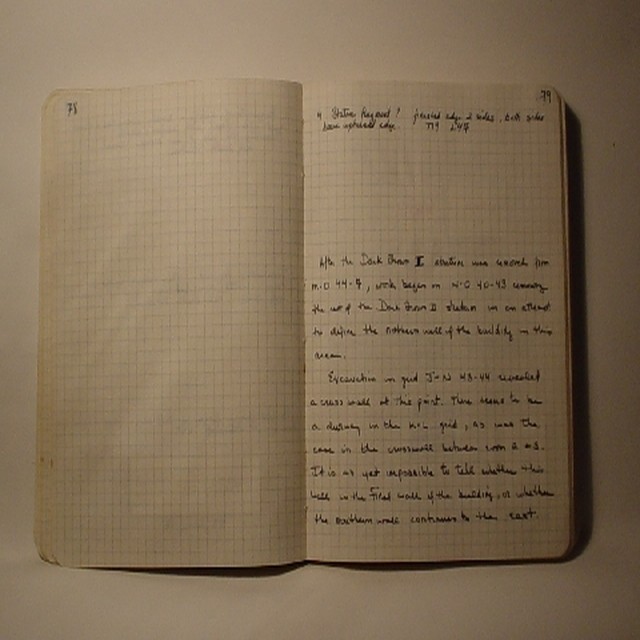 78
79
4 Station Keyword ? pierced edge 2 sides, both sides
have upturned edge. 279 L47
After the Dark Brown I stratum was removed from
M-O 44-7, work began in N-O 40-43 removing
the rest of the Dark Brown II stratum in an attempt
to define the northern wall of the building in this
area.
Excavation in grid J-N 43-44 revealed
a cross wall at this point. There seems to be
a doorway in the K-L grid, as was the
case in the crosswall between room 2 and 3.
It is as yet impossible to tell whether this
wall is the final wall of the building, or whether
the northern wall continues to the east.